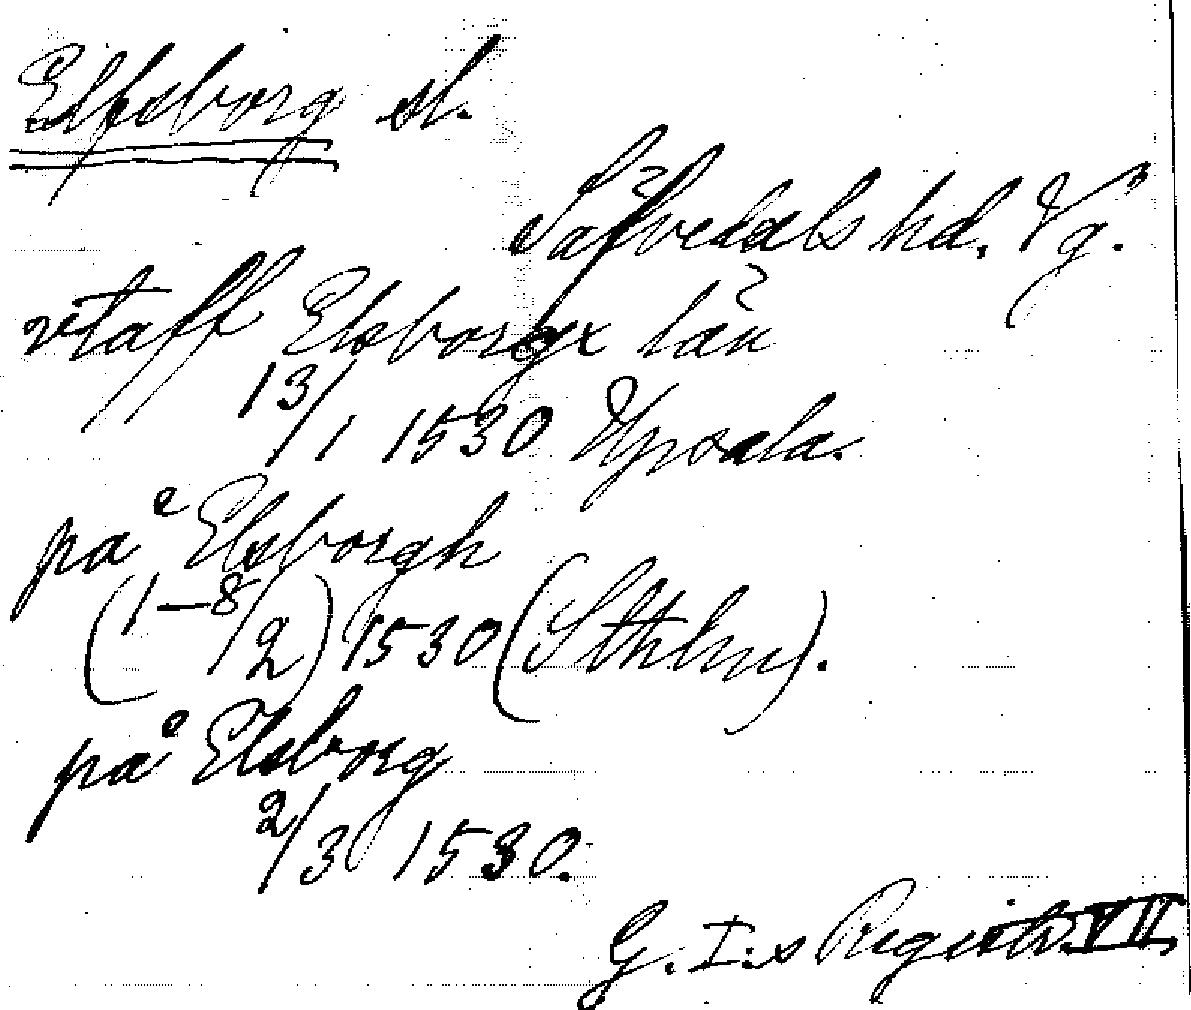 Elfsborg sl.
Säfvedals hd. Vg.
vtaff Elsborgx län
13/1 1530 Upsala.
på Elsborgh
(1–8/2) 1530 (Sthlm).
på Elsborg
2/3 1530.
G. I:s Registr. VII